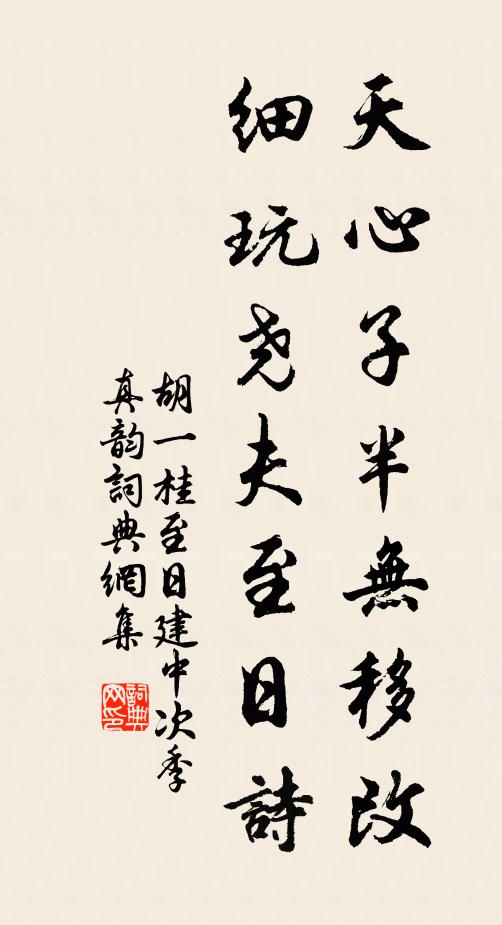 天心子半無移改
細玩尧夫至日詩
胡一桂至日建中次季
真韵詞典網集
詞典
网印